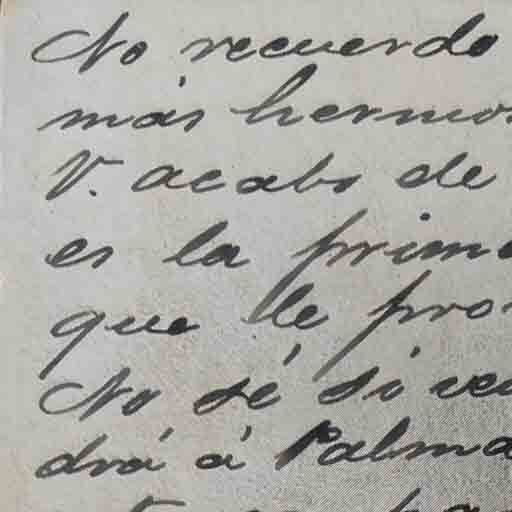 No recuerdo
más hermos
V. acabo de
es la prime
que le pro
No sé si ven
drá á Palma